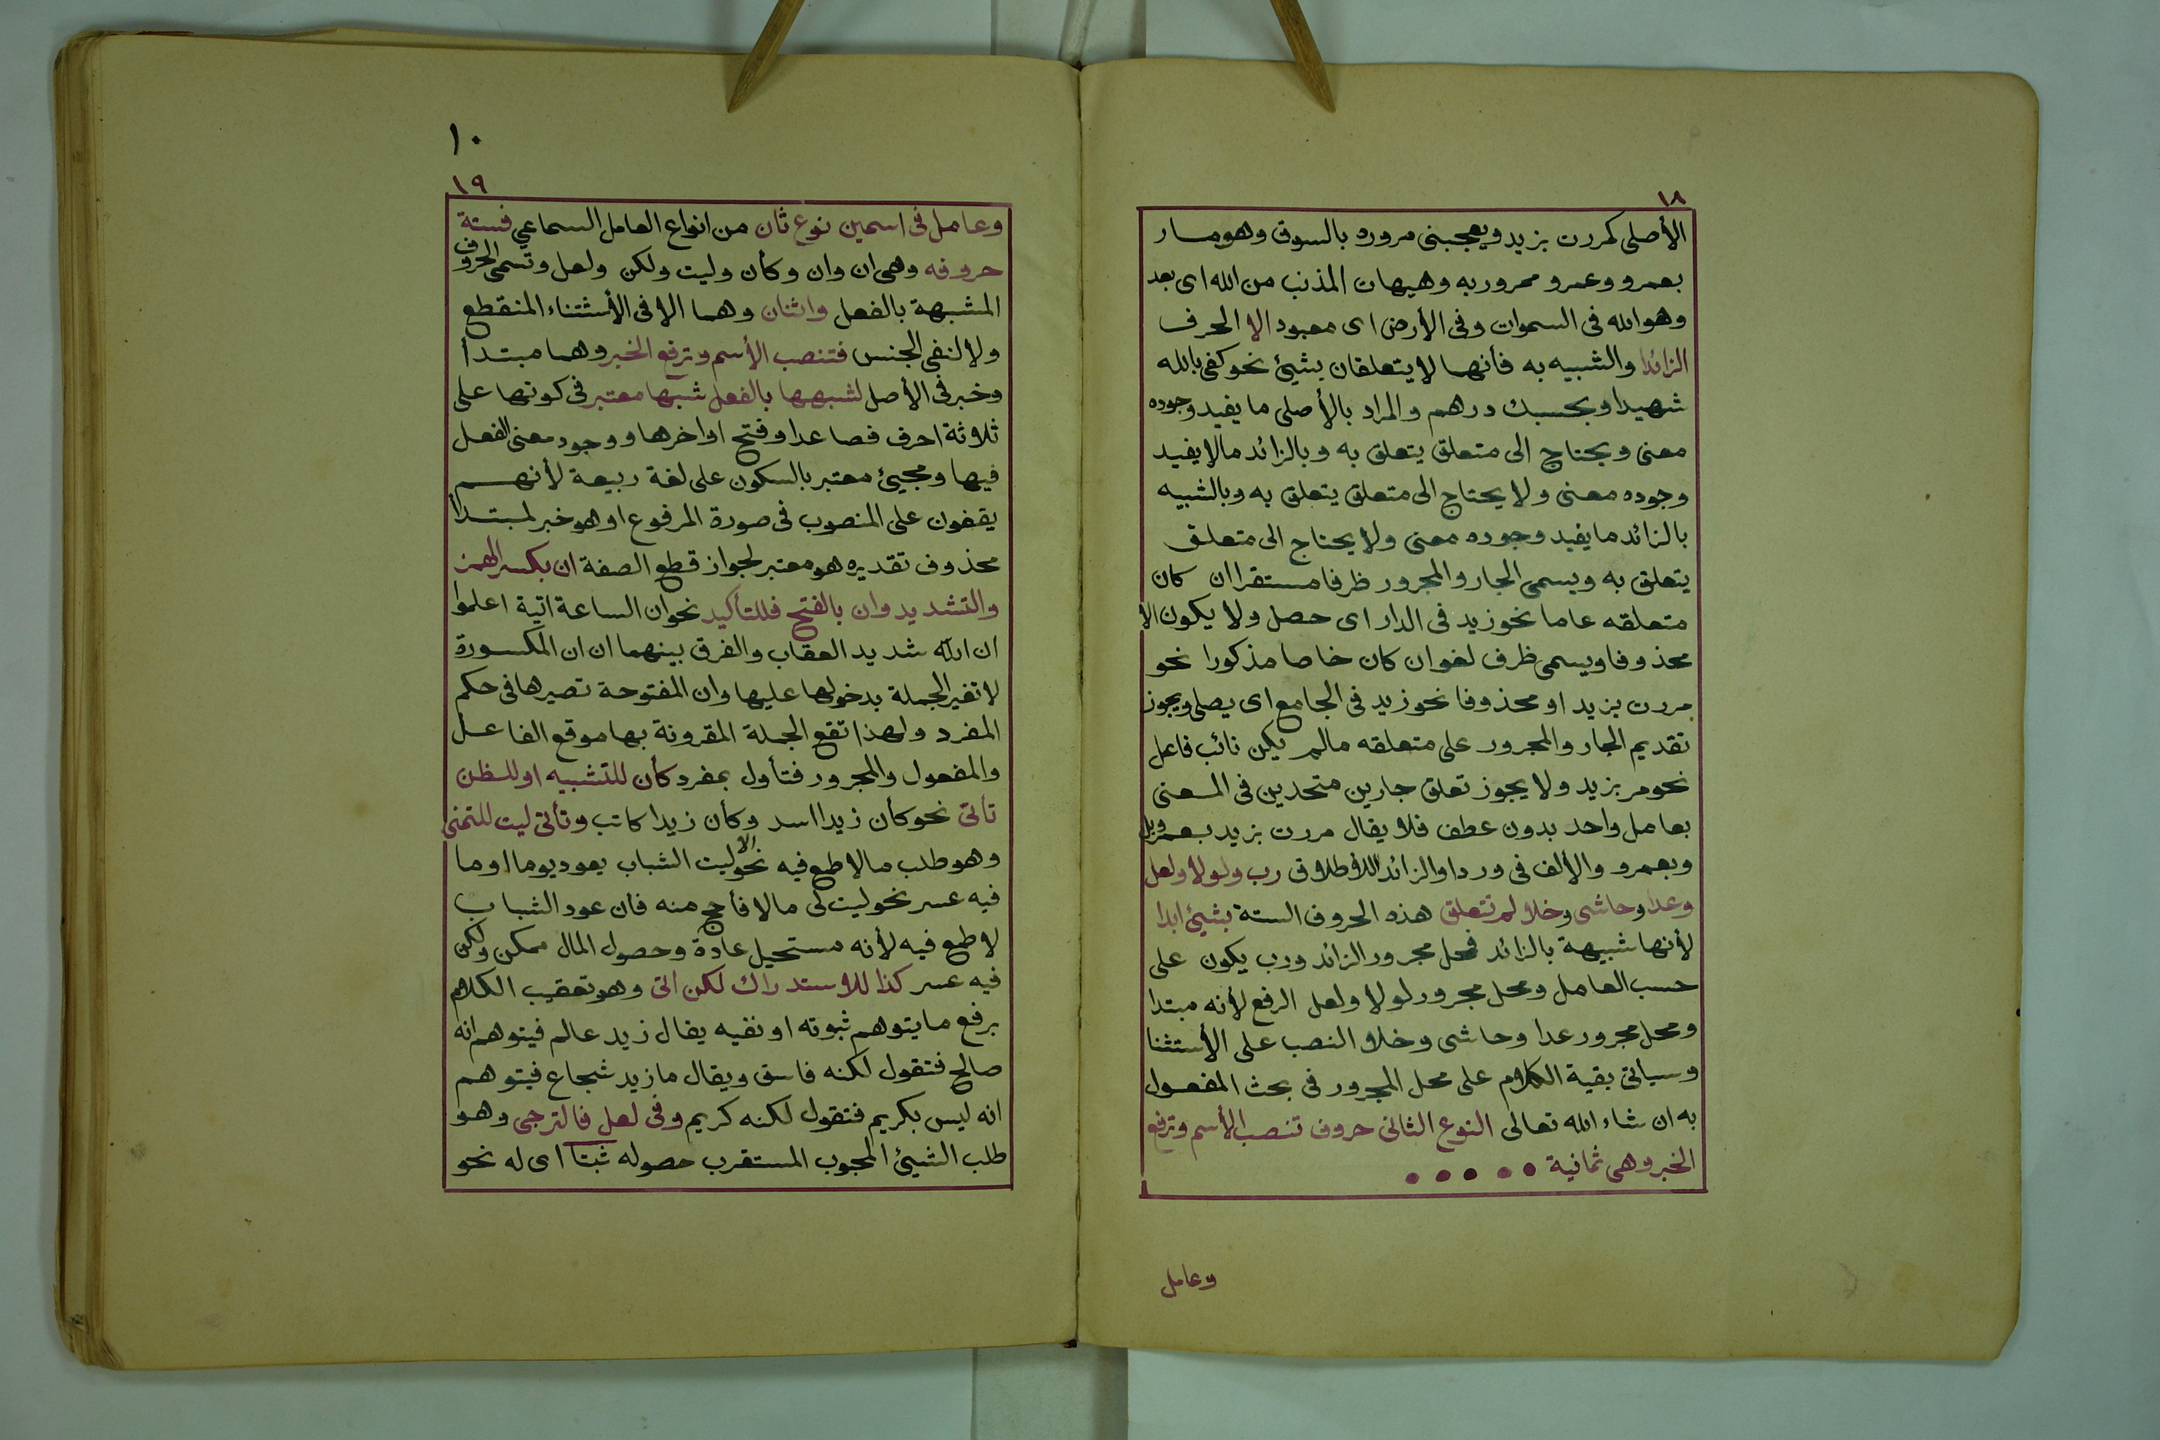 ١٨
الأصلى كمررت بزيد ويعجبنى مروره بالسوق وهو مار
بعمرو وعمرو ممرور به وهيهات المذنب من الله اى بعد
وهو الله فى السموات وفى الأرض اى معبود الا الحرف
الزائدا والشبيه به فأنهما لا يتعلقان بشيئ نحو كفى بالله
شهيدا وبحسبك درهم والمراد بالأصلى ما يفيد وجوده
معنى ويحتاج الى متعلق يتعلق به وبالزائد ما لا يفيد
وجوده معنى ولا يحتاج الى متعلق يتعلق به وبالشبيه
بالزائد ما يفيد وجوده معنى ولا يحتاج الى متعلق
يتعلق به ويسمى الجار والمجرور ظرفا مستقرا ان كان
متعلقه عاما نحو زيد فى الدار اى حصل ولا يكون الا
محذوفا ويسمى ظرف لغو ان كان خاصا مذكورا نحو
مررت بزيد او محذوفا نحو زيد فى الجامع اى يصلى ويجوز
تقديم الجار والمجرور على متعلقه مالم يكن نائب فاعل
نحو مر بزيد ولا يجوز تعلق جارين متحدين فى المعنى
بعامل واحد بدون عطف فلا يقال مررت بزيد بعمرو بل
وبعمرو والألف فى وردا والزائدا للأطلاق رب ولولا ولعل
وعدا وحاشى وخلا لم تتعلق هذه الحروف الستة بشيئ ابدا
لأنها شبيهة بالزائد فمحل مجرور الزائد ورب يكون على
حسب العامل ومحل مجرور لولا ولعل الرفع لأنه مبتدا
ومحل مجرور عدا وحاشى وخلا النصب على الأستثنا
وسياتى بقية الكلام على محل المجرور فى بحث المفعول
به ان شاء الله تعالى النوع الثانى حروف تنصب الأسم وترفع
الخبر وهى ثمانية
وعامل
١٠
١٩
وعامل فى اسمين نوع ثان من انواع العامل السماعي فستة
حروفه وهى ان وان وكأن وليت ولكن ولعل وتسمى الحروف
المشبهة بالفعل واثنان وهما الا فى الأستثناء المنقطع
ولا لنفى الجنس فتنصب الأسم وترفع الخبر وهما مبتدأ
وخبر فى الأصل لشبهها بالفعل شبها معتبر فى كونها على
ثلاثة احرف فصاعدا وفتح اواخرها ووجود معنى الفعل
فيها ومجيئ معتبر بالسكون على لغة ربيعة لأنهم
يقفون على المنصوب فى صورة المرفوع او هو خبر لمبتدأ
محذوف تقديره هو معتبر لجواز قطع الصفة ان بكسر الهمز
والتشديد وان بالفتح فللتأكيد نحو ان الساعة اتية اعلموا
ان الله شديد العقاب والفرق بينهما ان ان المكسورة
لا تغير الجملة بدخولها عليها وان المفتوحة تصيرها فى حكم
المفرد ولهذا تقع الجملة المقرونة بها موقع الفاعل
والمفعول والمجرور فتأول بمفرد كأن للتشبيه او للظن
تأتى نحو كأن زيدا اسد وكأن زيدا كاتب وتأتى ليت للتمنى
وهو طلب ما لا طمع فيه نحو الا ليت الشباب يعود يوما او ما
فيه عسر نحو ليت لى مالا فأحج منه فان عود الشباب
لا طمع فيه لأنه مستحيل عادة وحصول المال ممكن ولكن
فيه عسر كذا للاستدراك لكن اتى وهو تعقيب الكلام
برفع ما يتوهم ثبوته او نفيه يقال زيد عالم فيتوهم انه
صالح فتقول لكنه فاسق ويقال ما زيد شجاع فيتوهم
انه ليس بكريم فتقول لكنه كريم وفى لعل فالترجى وهو
طلب الشيئ المحبوب المستقرب حصوله ثبتا اى له نحو